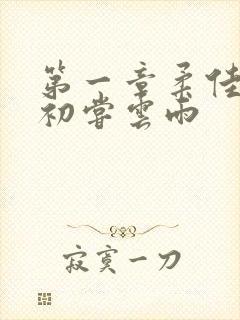 第一章柔佳
初嘗雲雨
寂寞一刀